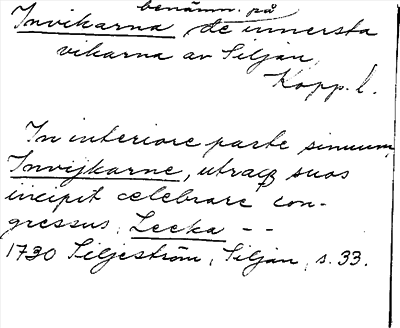 benämn. på
Invikarna de innersta
vikarna av Siljan,
Kopp. l.
In interiore parte sinuum,
Invijkarne, utraq suos
incipit celebrare con-
gressus, Lecka --
1730 Siljeström, Siljan, s. 33.